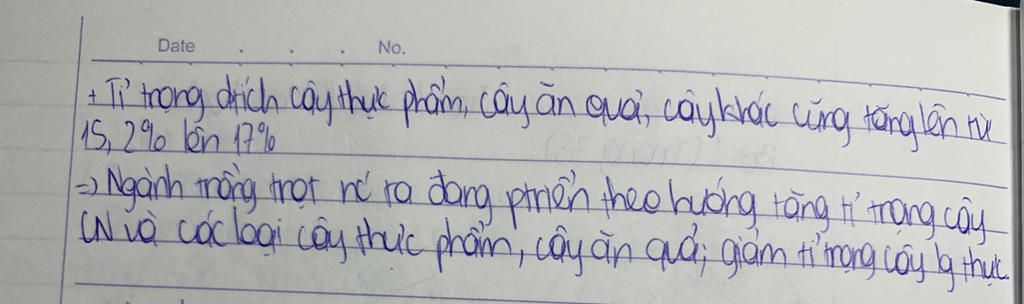 Date . . . No.
+ Tỉ trọng dtích cây thực phẩm, cây ăn quả, cây khác cũng tăng lên từ
15,2% lên 17%
=> Ngành trồng trọt nc ta đang ptriển theo hướng tăng tỉ trọng cây
CN và các loại cây thực phẩm, cây ăn quả; giảm tỉ trọng cây lg thực.